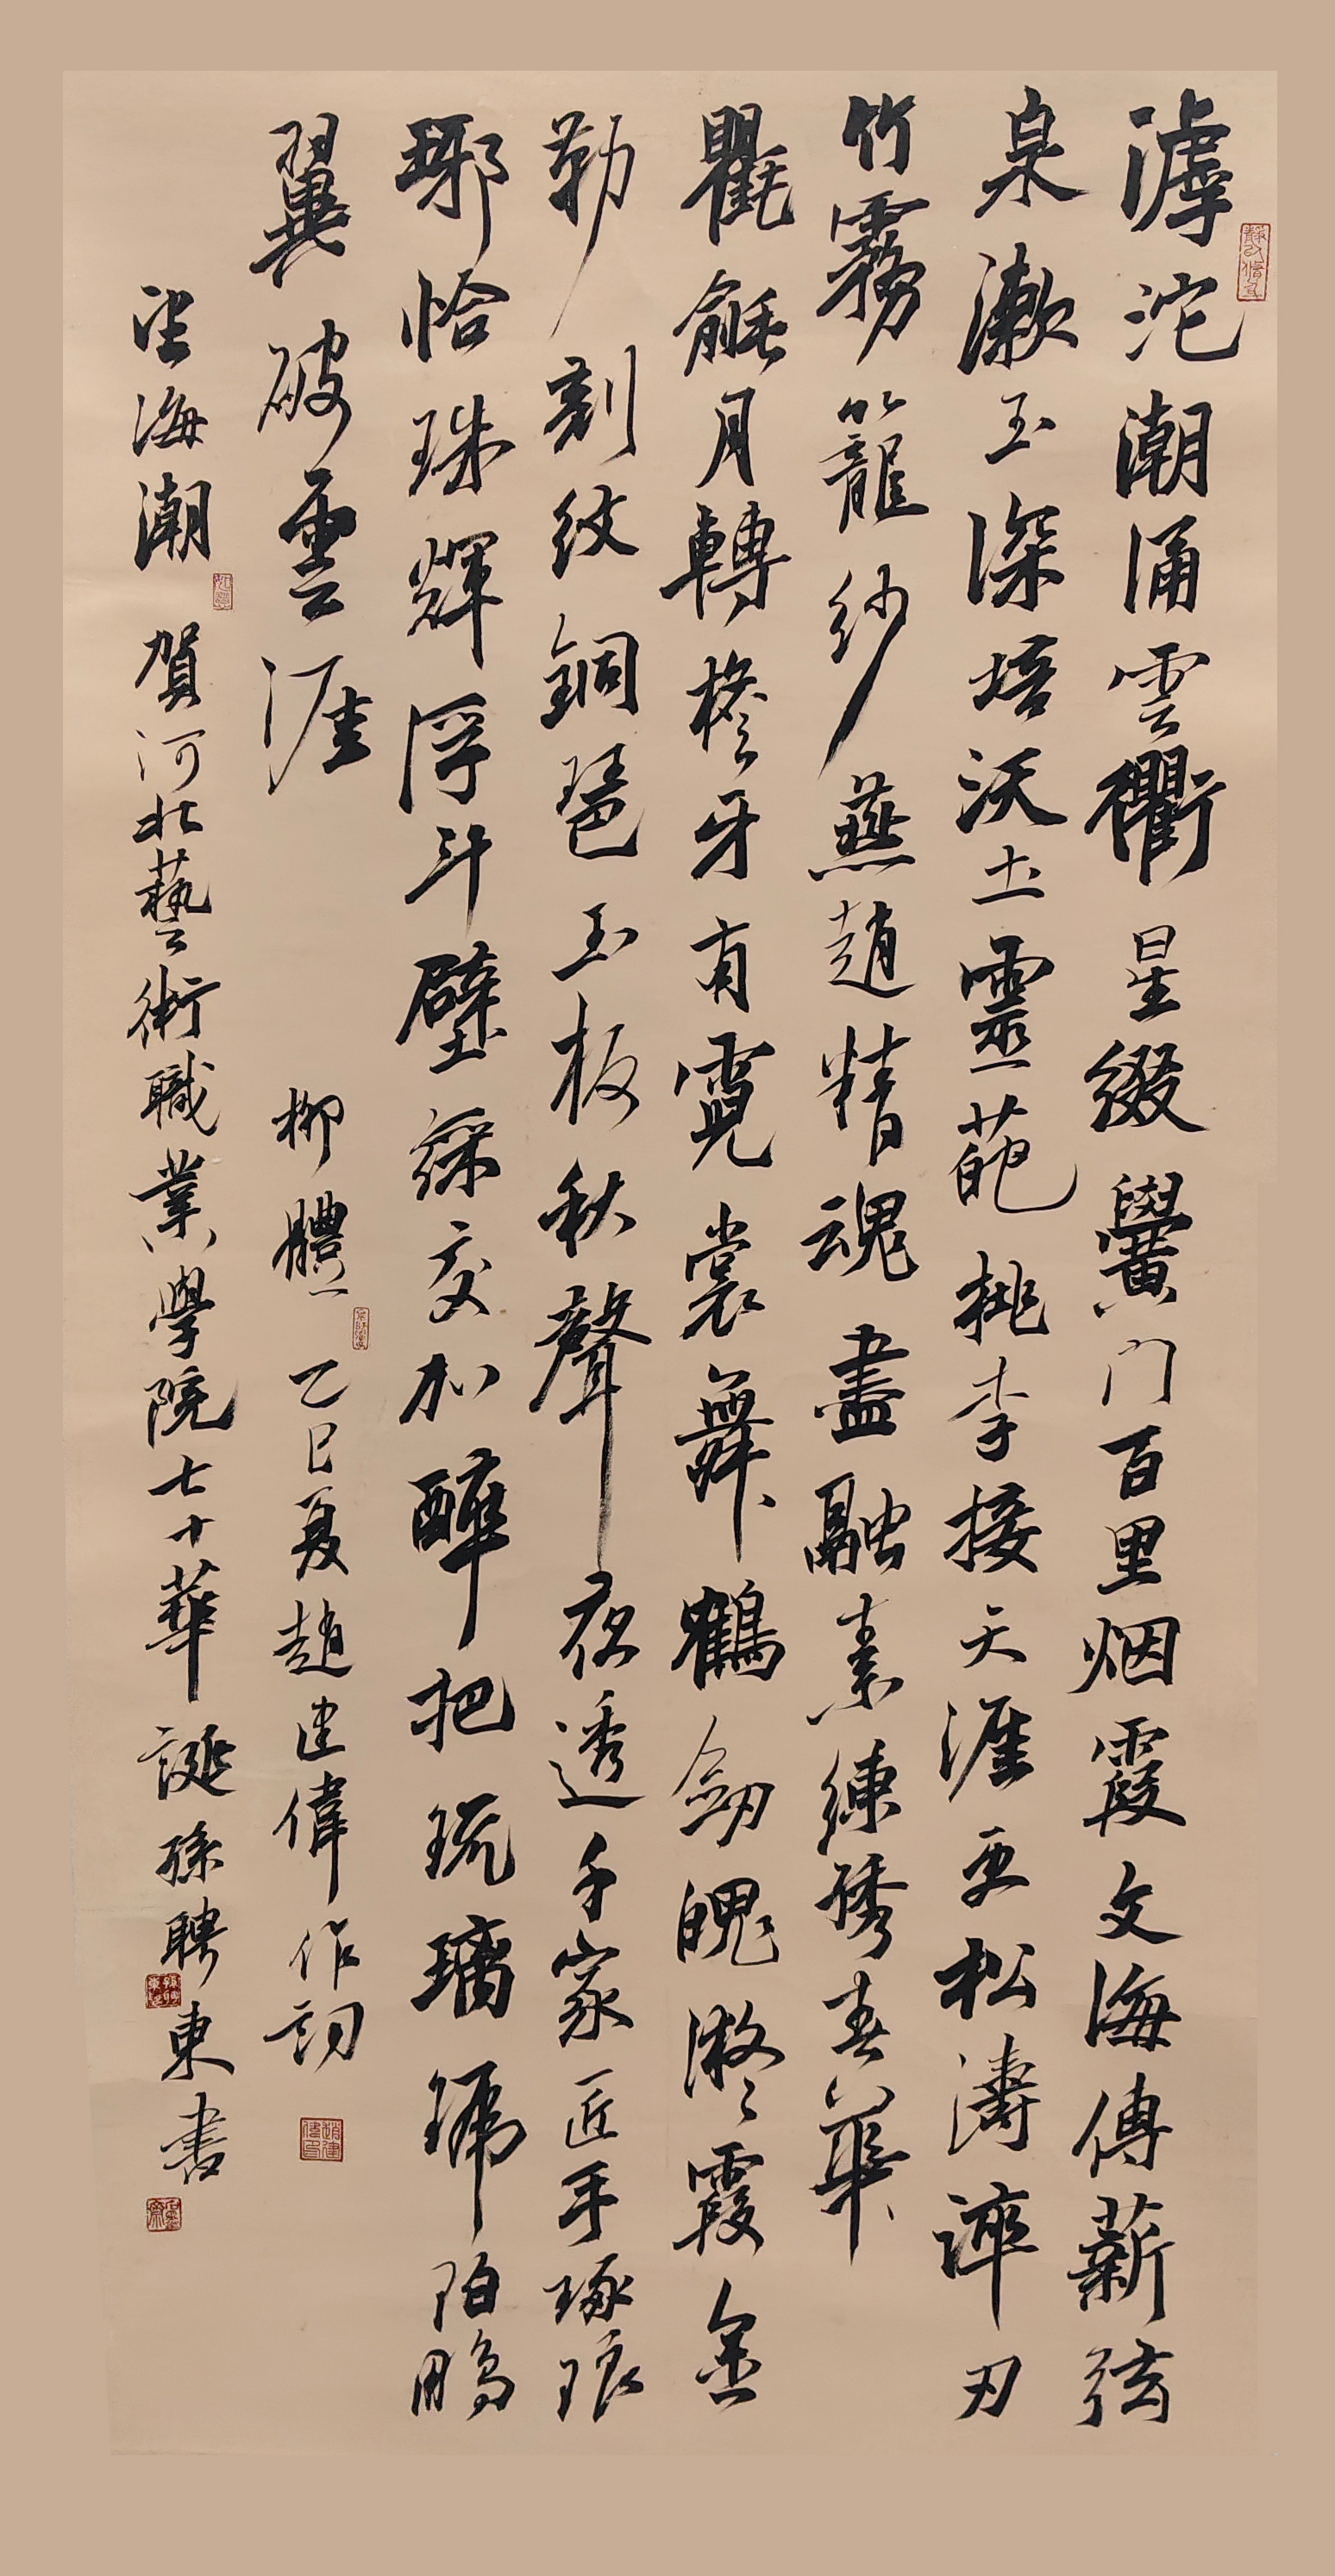 滹沱潮涌雲衢星綴黌门百里烟霞文海傅薪弦
泉漱玉深培沃土靈葩桃李接天涯更松濤淬刃
竹霧籠紗燕趙精魂盡融素練綉春華
氍毹月轉檐牙有霓裳舞鶴劍魄凝霞金
勒刻紋銅琶玉板秋聲夜透千家匠手琢琅
琊恰珠輝浮斗壁綵交加醉把琉璃硯拍鵬
翼破雲涯
柳體 乙巳夏趙建偉作詞
望海潮 賀河北藝術職業學院七十華誕孫聘東書